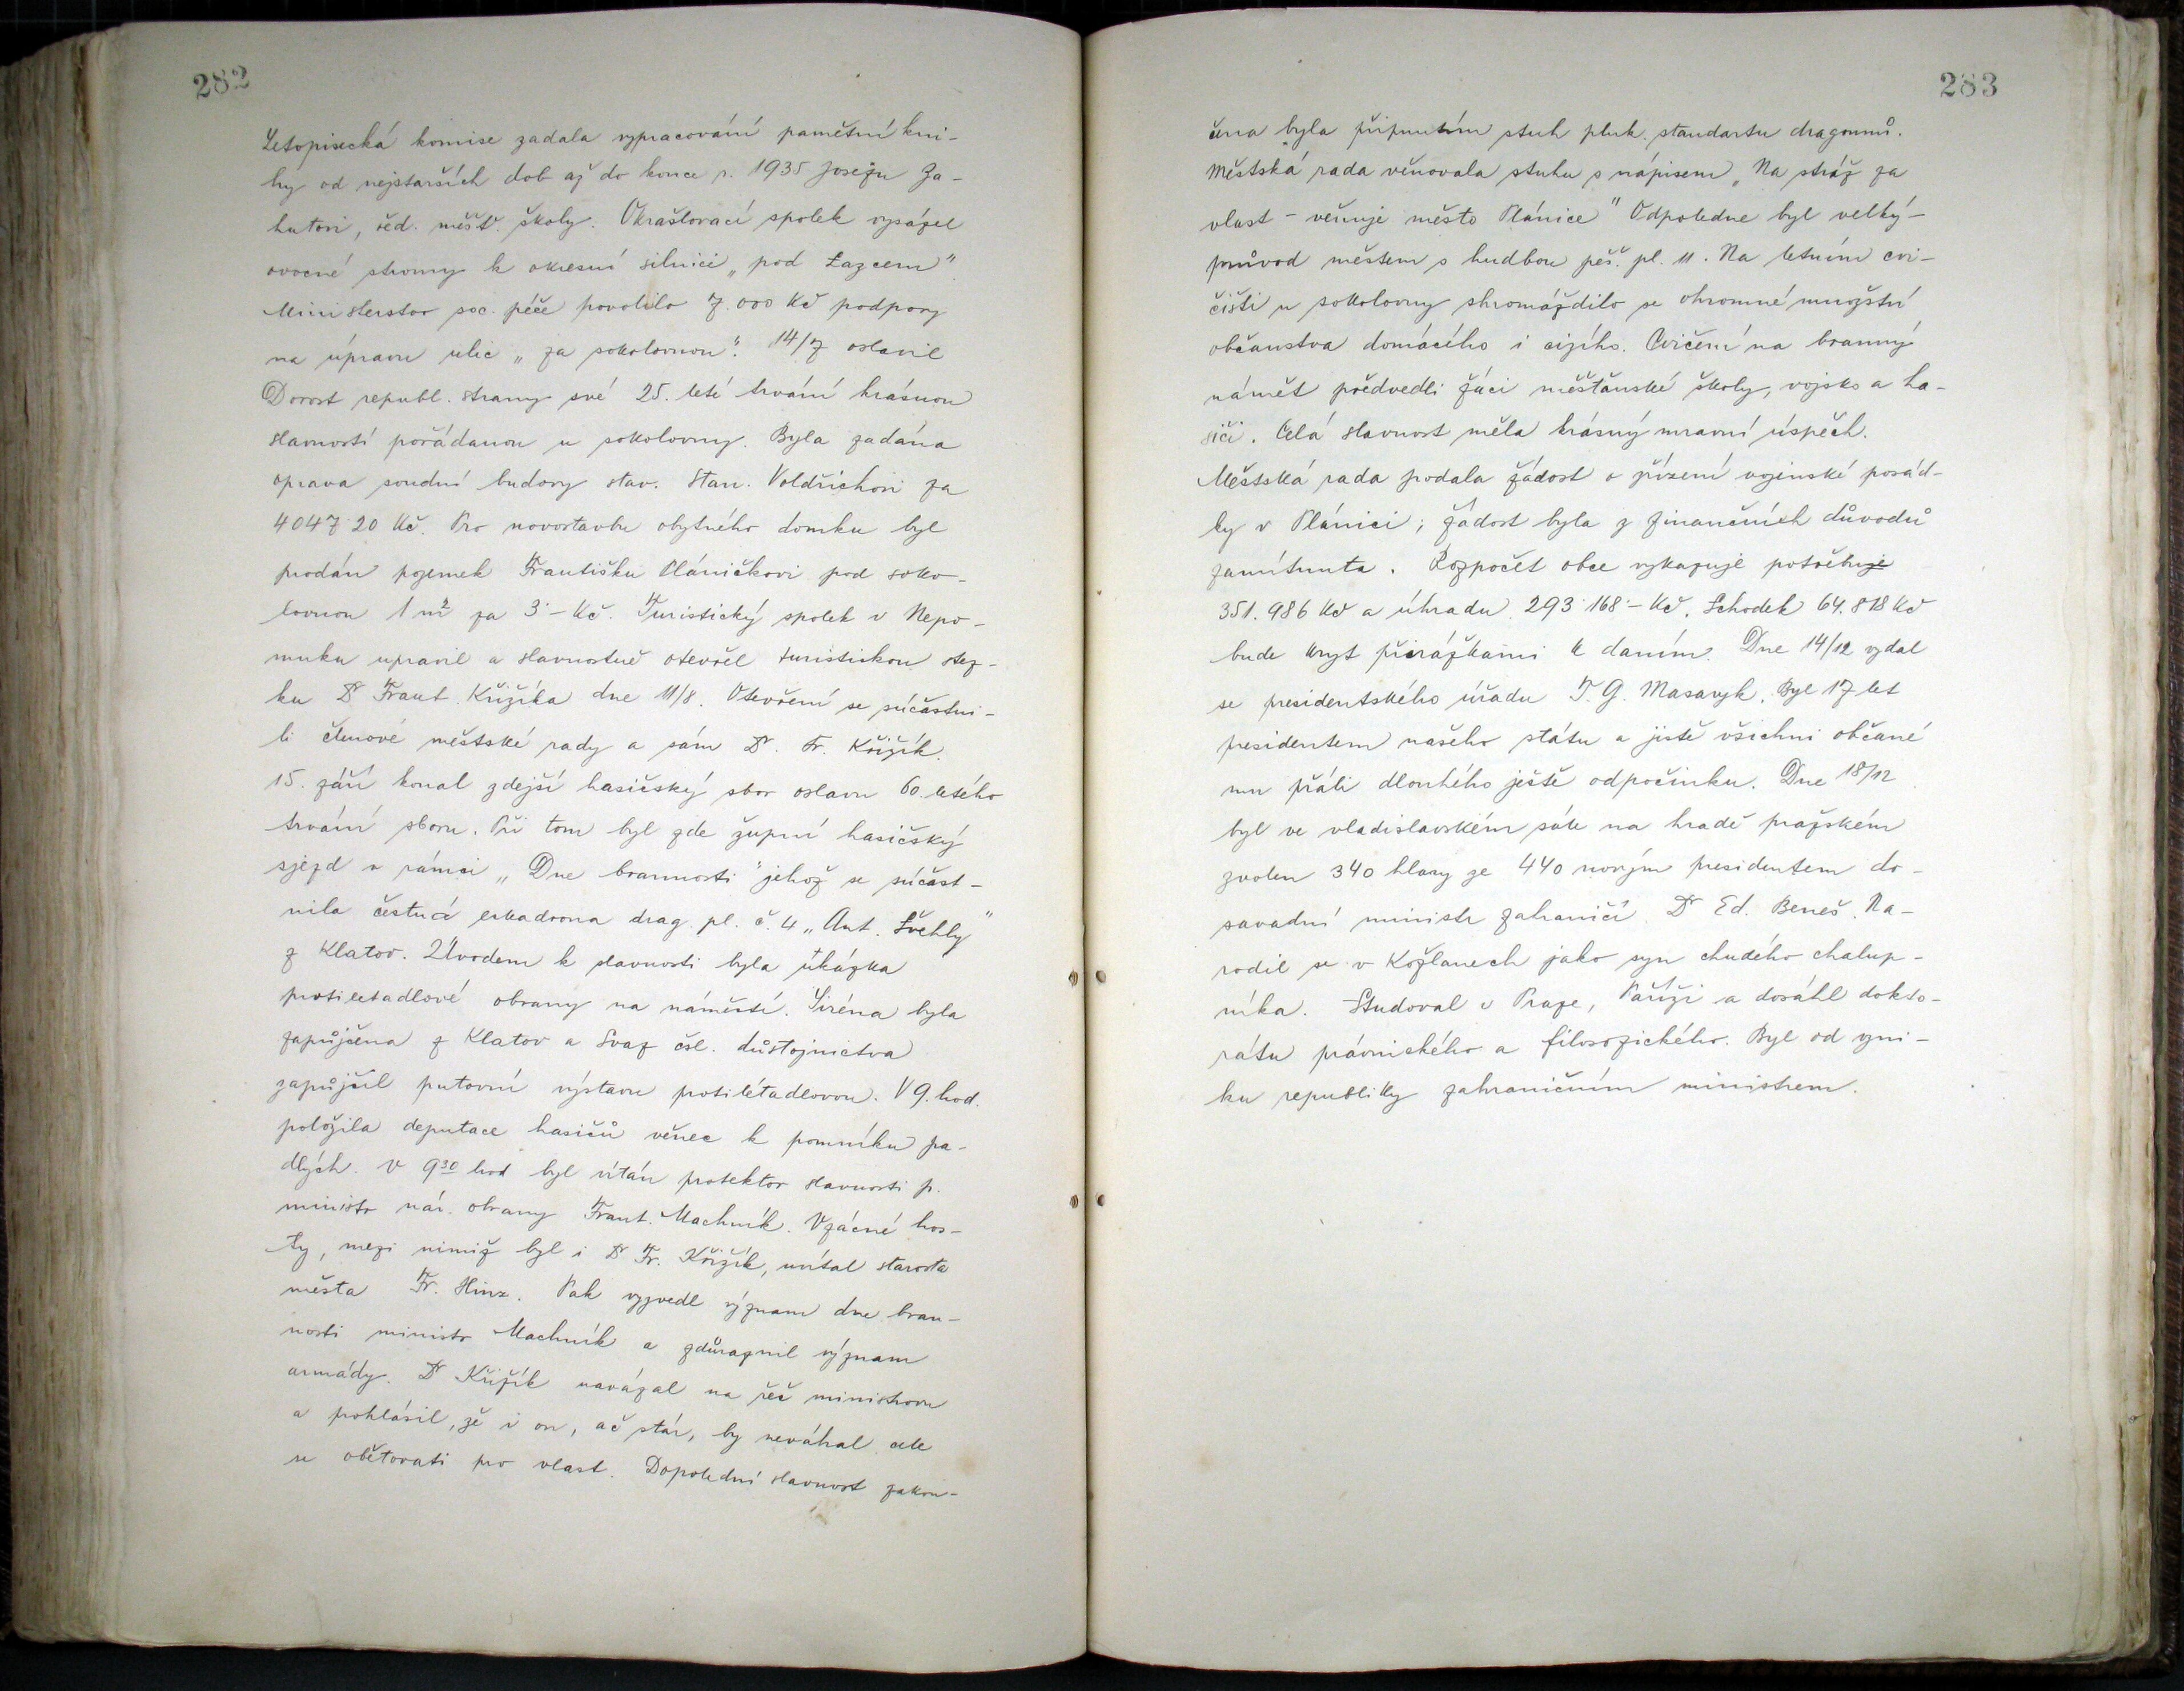 282
Letopisecká komise zadala vypracování pamětní kni-
hy od nejstarších dob až do konce r. 1935 Josefu Za-
hutovi, řed. měšť. školy. Okrašlovací spolek vysázel
ovocné stromy k okresní silnici „pod Lazcem"
Ministerstvo soc. péče povolilo 7.000 Kč podpory
na úpravu ulic „za sokolovnou". 14/7 oslavil
Dorost republ. strany své 25. leté trvání krásnou
slavností pořádanou u sokolovny. Byla zadána
oprava soudní budovy stav. Stan. Voldřichovi za
4047·20 Kč. Pro novostavbu obytného domku byl
prodán pozemek Františku Pláničkovi pod soko-
lovnou 1 m² za 3·- Kč. Turistický spolek v Nepo-
muku upravil a slavnostně otevřel turistickou stez-
ku Dr Frant. Křižíka dne 11/8. Otevření se súčastni-
li členové městské rady a sám Dr. Fr. Křižík.
15. září konal zdejší hasičský sbor oslavu 60. letého
trvání sboru. Při tom byl zde župní hasičský
sjezd v rámci „Dne brannosti" jehož se súčast-
nila čestná eskadrona drag. pl. č. 4 „Ant. Švehly"
z Klatov. Úvodem k slavnosti byla ukázka
protiletadlové obrany na náměstí. Siréna byla
zapůjčena z Klatov a Svaz čsl. důstojnictva
zapůjčil putovní výstavu protilétadlovou. V 9. hod.
položila deputace hasičů věnec k pomníku pa-
dlých. V 9³⁰ hod byl vítán protektor slavnosti p.
ministr nár. obrany Frant. Machník. Vzácné hos-
ty, mezi nimiž byl i Dr Fr. Křižík, uvítal starosta
města Fr. Hinz. Pak vyzvedl význam dne bran-
nosti ministr Machník a zdůraznil význam
armády. Dr Křižík navázal na řeč ministrovu
a prohlásil, že i on, ač stár, by neváhal cele
se obětovati pro vlast. Dopolední slavnost zakon-
283
čena byla připnutím stuh pluk. standartu dragounů.
Městská rada věnovala stuhu s nápisem „Na stráž za
vlast - věnuje město Plánice" Odpoledne byl velký
průvod městem s hudbou pěš. pl. 11. Na letním cvi-
čišti u sokolovny shromáždilo se ohromné množství
občanstva domácího i cizího. Cvičení na branný
námět předvedli žáci měšťanské školy, vojsko a ha-
siči. Celá slavnost měla krásný mravní úspěch.
Městská rada podala žádost o zřízení vojenské posád-
ky v Plánici; žádost byla z finančních důvodů
zamítnuta. Rozpočet obce vykazuje potřebuje
351.986 Kč a úhradu 293·168·- Kč. Schodek 64.818 Kč
bude kryt přirážkami k daním. Dne 14/12 vzdal
se presidentského úřadu T. G. Masaryk. Byl 17 let
presidentem našeho státu a jistě všichni občané
mu přáli dlouhého ještě odpočinku. Dne 18/12
byl ve vladislavském sále na hradě pražském
zvolen 340 hlasy ze 440 novým presidentem do-
savadní ministr zahraničí Dr Ed. Beneš. Na-
rodil se v Kožlanech jako syn chudého chalup-
níka. Studoval v Praze, Paříži a dosáhl dokto-
rátu právnického a filosofického. Byl od vzni-
ku republiky zahraničním ministrem.